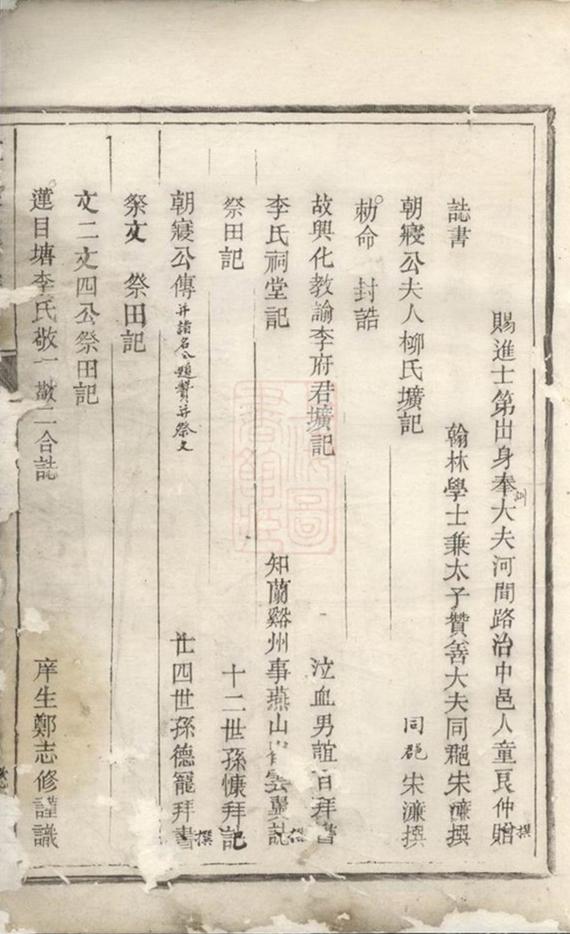 賜進士第出身奉大夫河間路治中邑人童良仲贈撰
誌書 翰林學士兼太子贊善大夫同郡宋濂撰
朝寢公夫人柳氏壙記 同郡宋濂撰
勅命 封誥
故興化教諭李府君壙記 泣血男誼百拜書
李氏祠堂記 知蘭谿州事燕山雲翼記撰
祭田記 十二世孫慷拜記
朝寢公傳并諸名公題贊并祭文 廿四世孫德寵拜書撰
祭文 祭田記
文二文四公祭田記
蓮目塘李氏敬一敬二合誌 庠生鄭志修謹識